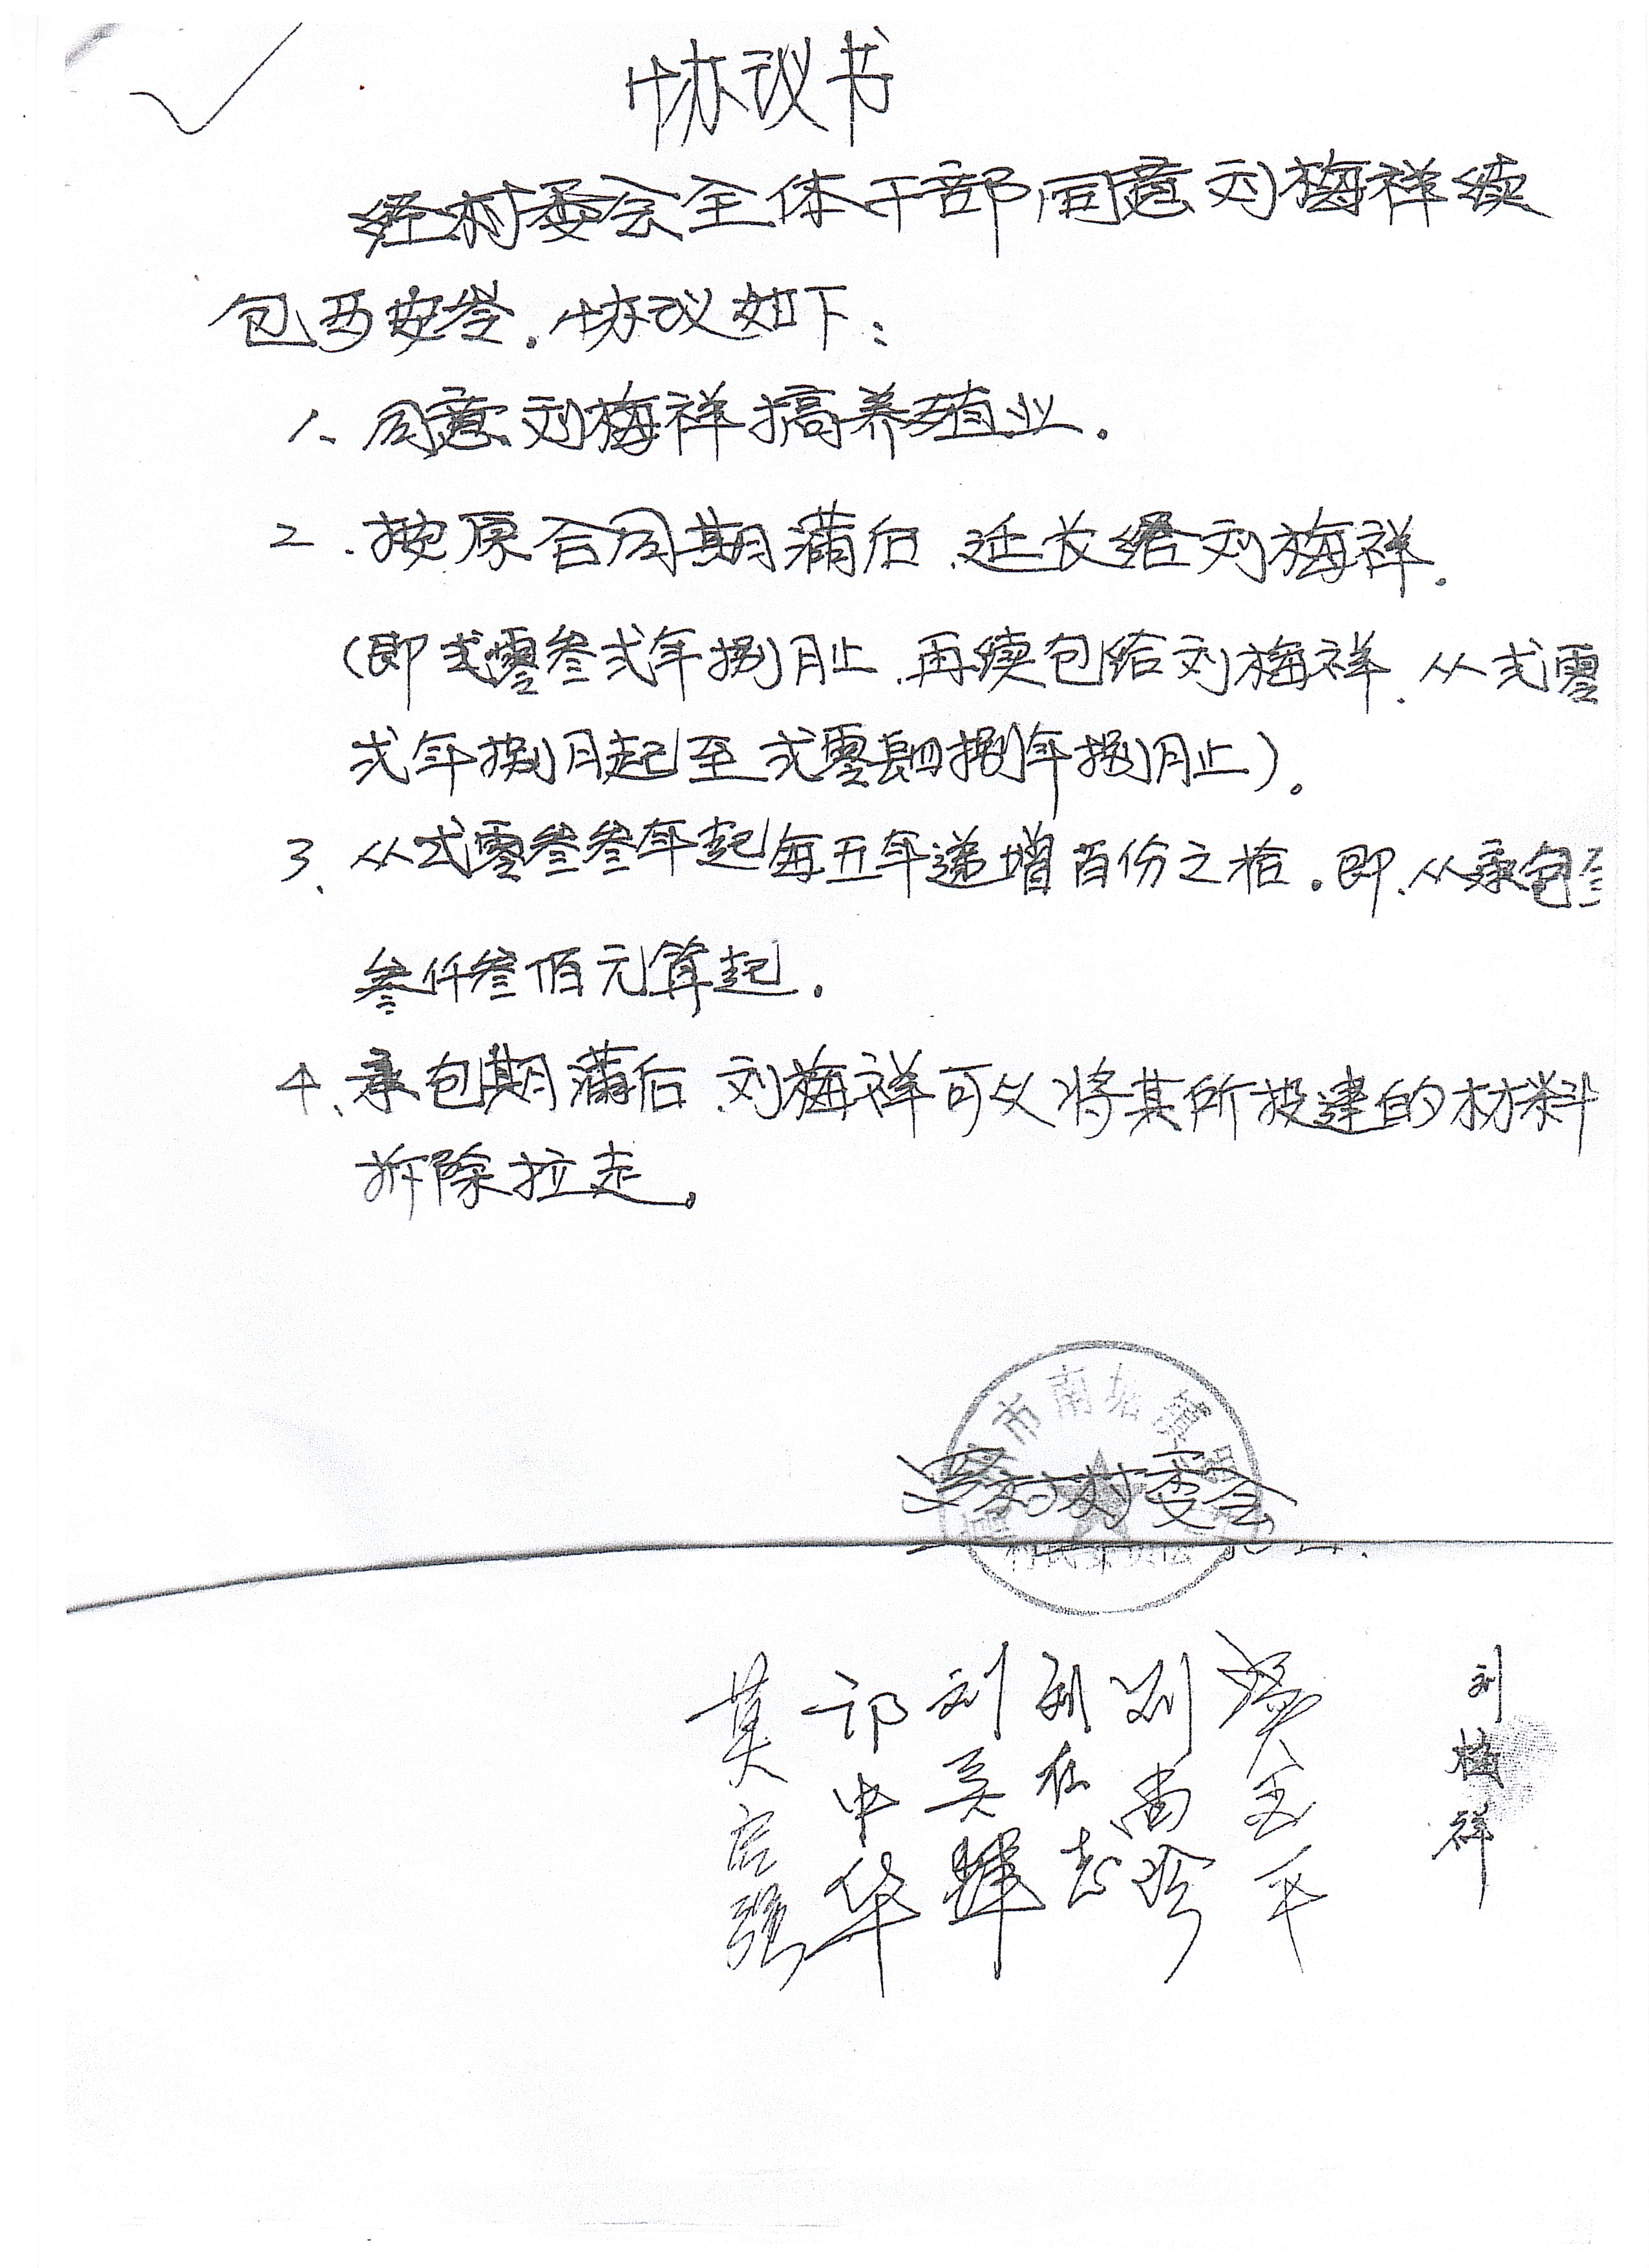 协议书
经村委会全体干部同意刘梅祥续
包西安岺.协议如下:
1、同意刘梅祥搞养殖业.
2.按原合同期满后.延长给刘梅祥.
(即弍零叁弍年捌月止.再续包给刘梅祥.从弍零
弍年捌月起至弍零肆捌年捌月止)。
3、从弍零叁叁年起每五年递增百份之拾.即.从承包
叁仟叁佰元算起.
4、承包期满后.刘梅祥可以将其所投建的材料
拆除拉走。
市南塘镇
村村委会
刘梅祥